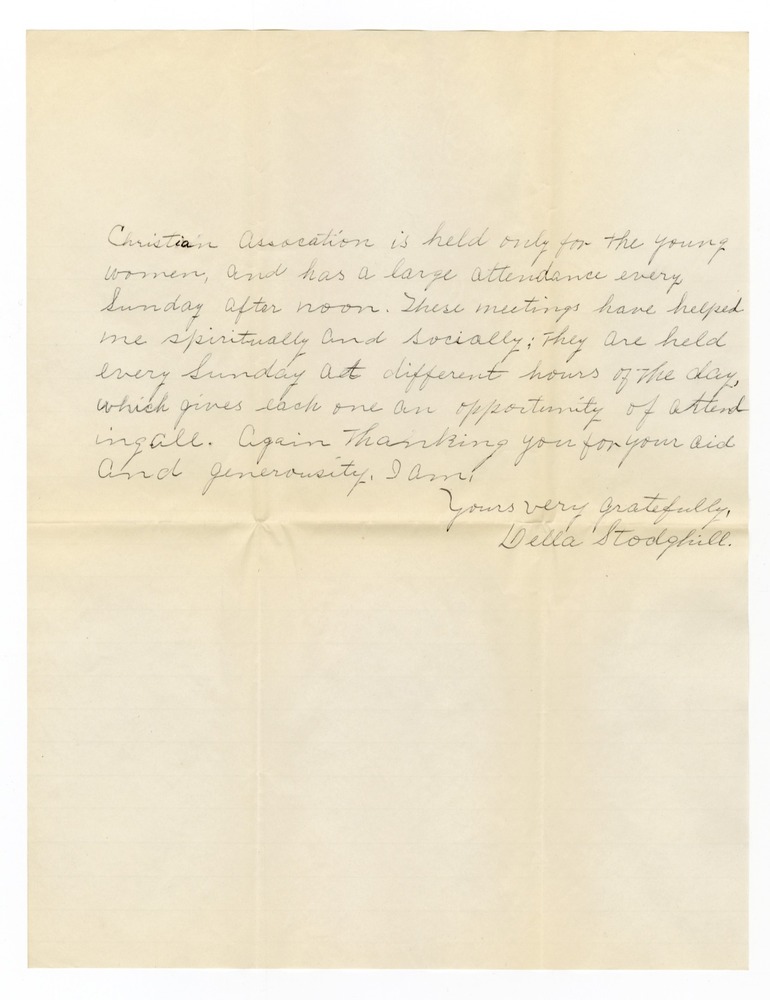 Christian Assocation is held only for the young
women, and has a large attendance every
Sunday after noon. These meetings have helped
me spiritually and socially; They are held
every Sunday at different hours of the day,
which gives each one an opportunity of attend
ing all. Again Thanking you for your aid
and generousity. I am,
Yours very gratefully,
Della Stodghill.